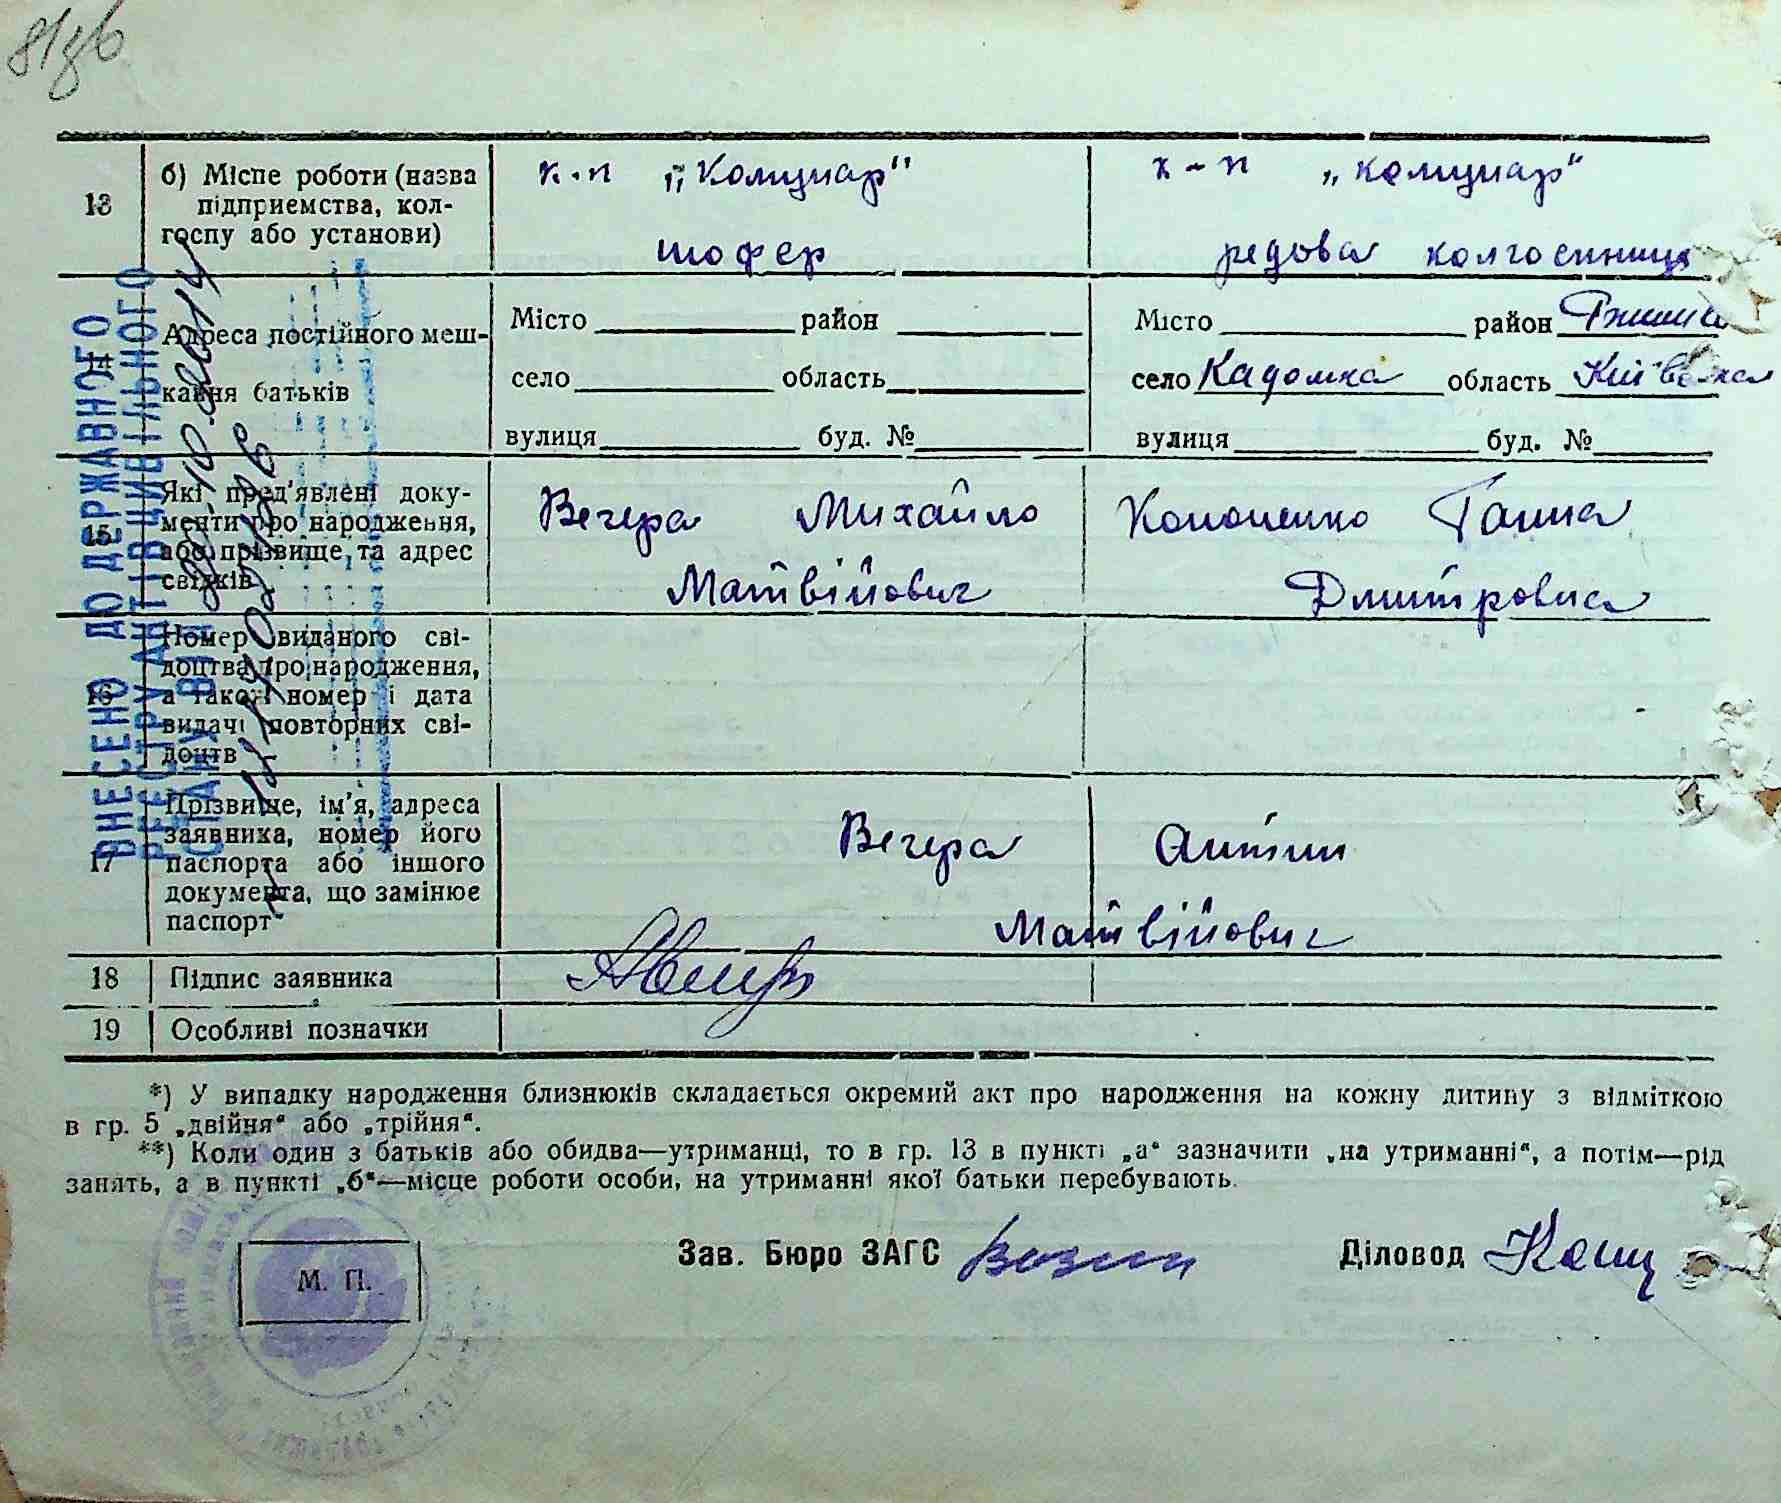 81зв
13 б) Міспе роботи (назва підприємства, кол-госпу або установи)
к-п „Комунар" к-п „комунар"
шофер редова колгоспниця
14 Адреса постійного меш-кання батьків
Місто район Місто район
село область село Кадомка область Київська
вулиця буд. № вулиця буд. №
15 Які пред'явлені доку-менти про народження, або прізвище, та адрес свідків
Вечера Михайло Кононенко Ганна
Матвійович Дмитровна
16 Номер виданого сві-доцтва про народження, а також номер і дата видачі повторних сві-доцтв
17 Прізвище, ім'я, адреса заявника, номер його паспорта або іншого документа, що замінює паспорт
Вечера Антін
Матвійович
18 Підпис заявника
19 Особливі позначки
ВНЕСЕНО ДО ДЕРЖАВНОГО
РЕЄСТРУ АКТІВ ЦИВІЛЬНОГО
СТАНУ
*) У випадку народження близнюків складається окремий акт про народження на кожну дитину з відміткою
в гр. 5 „двійня" або „трійня".
**) Коли один з батьків або обидва—утриманці, то в гр. 13 в пункті „а" зазначити „на утриманні", а потім—рід
занять, а в пункті „б"—місце роботи особи, на утриманні якої батьки перебувають.
Зав. Бюро ЗАГС Діловод
М. П.